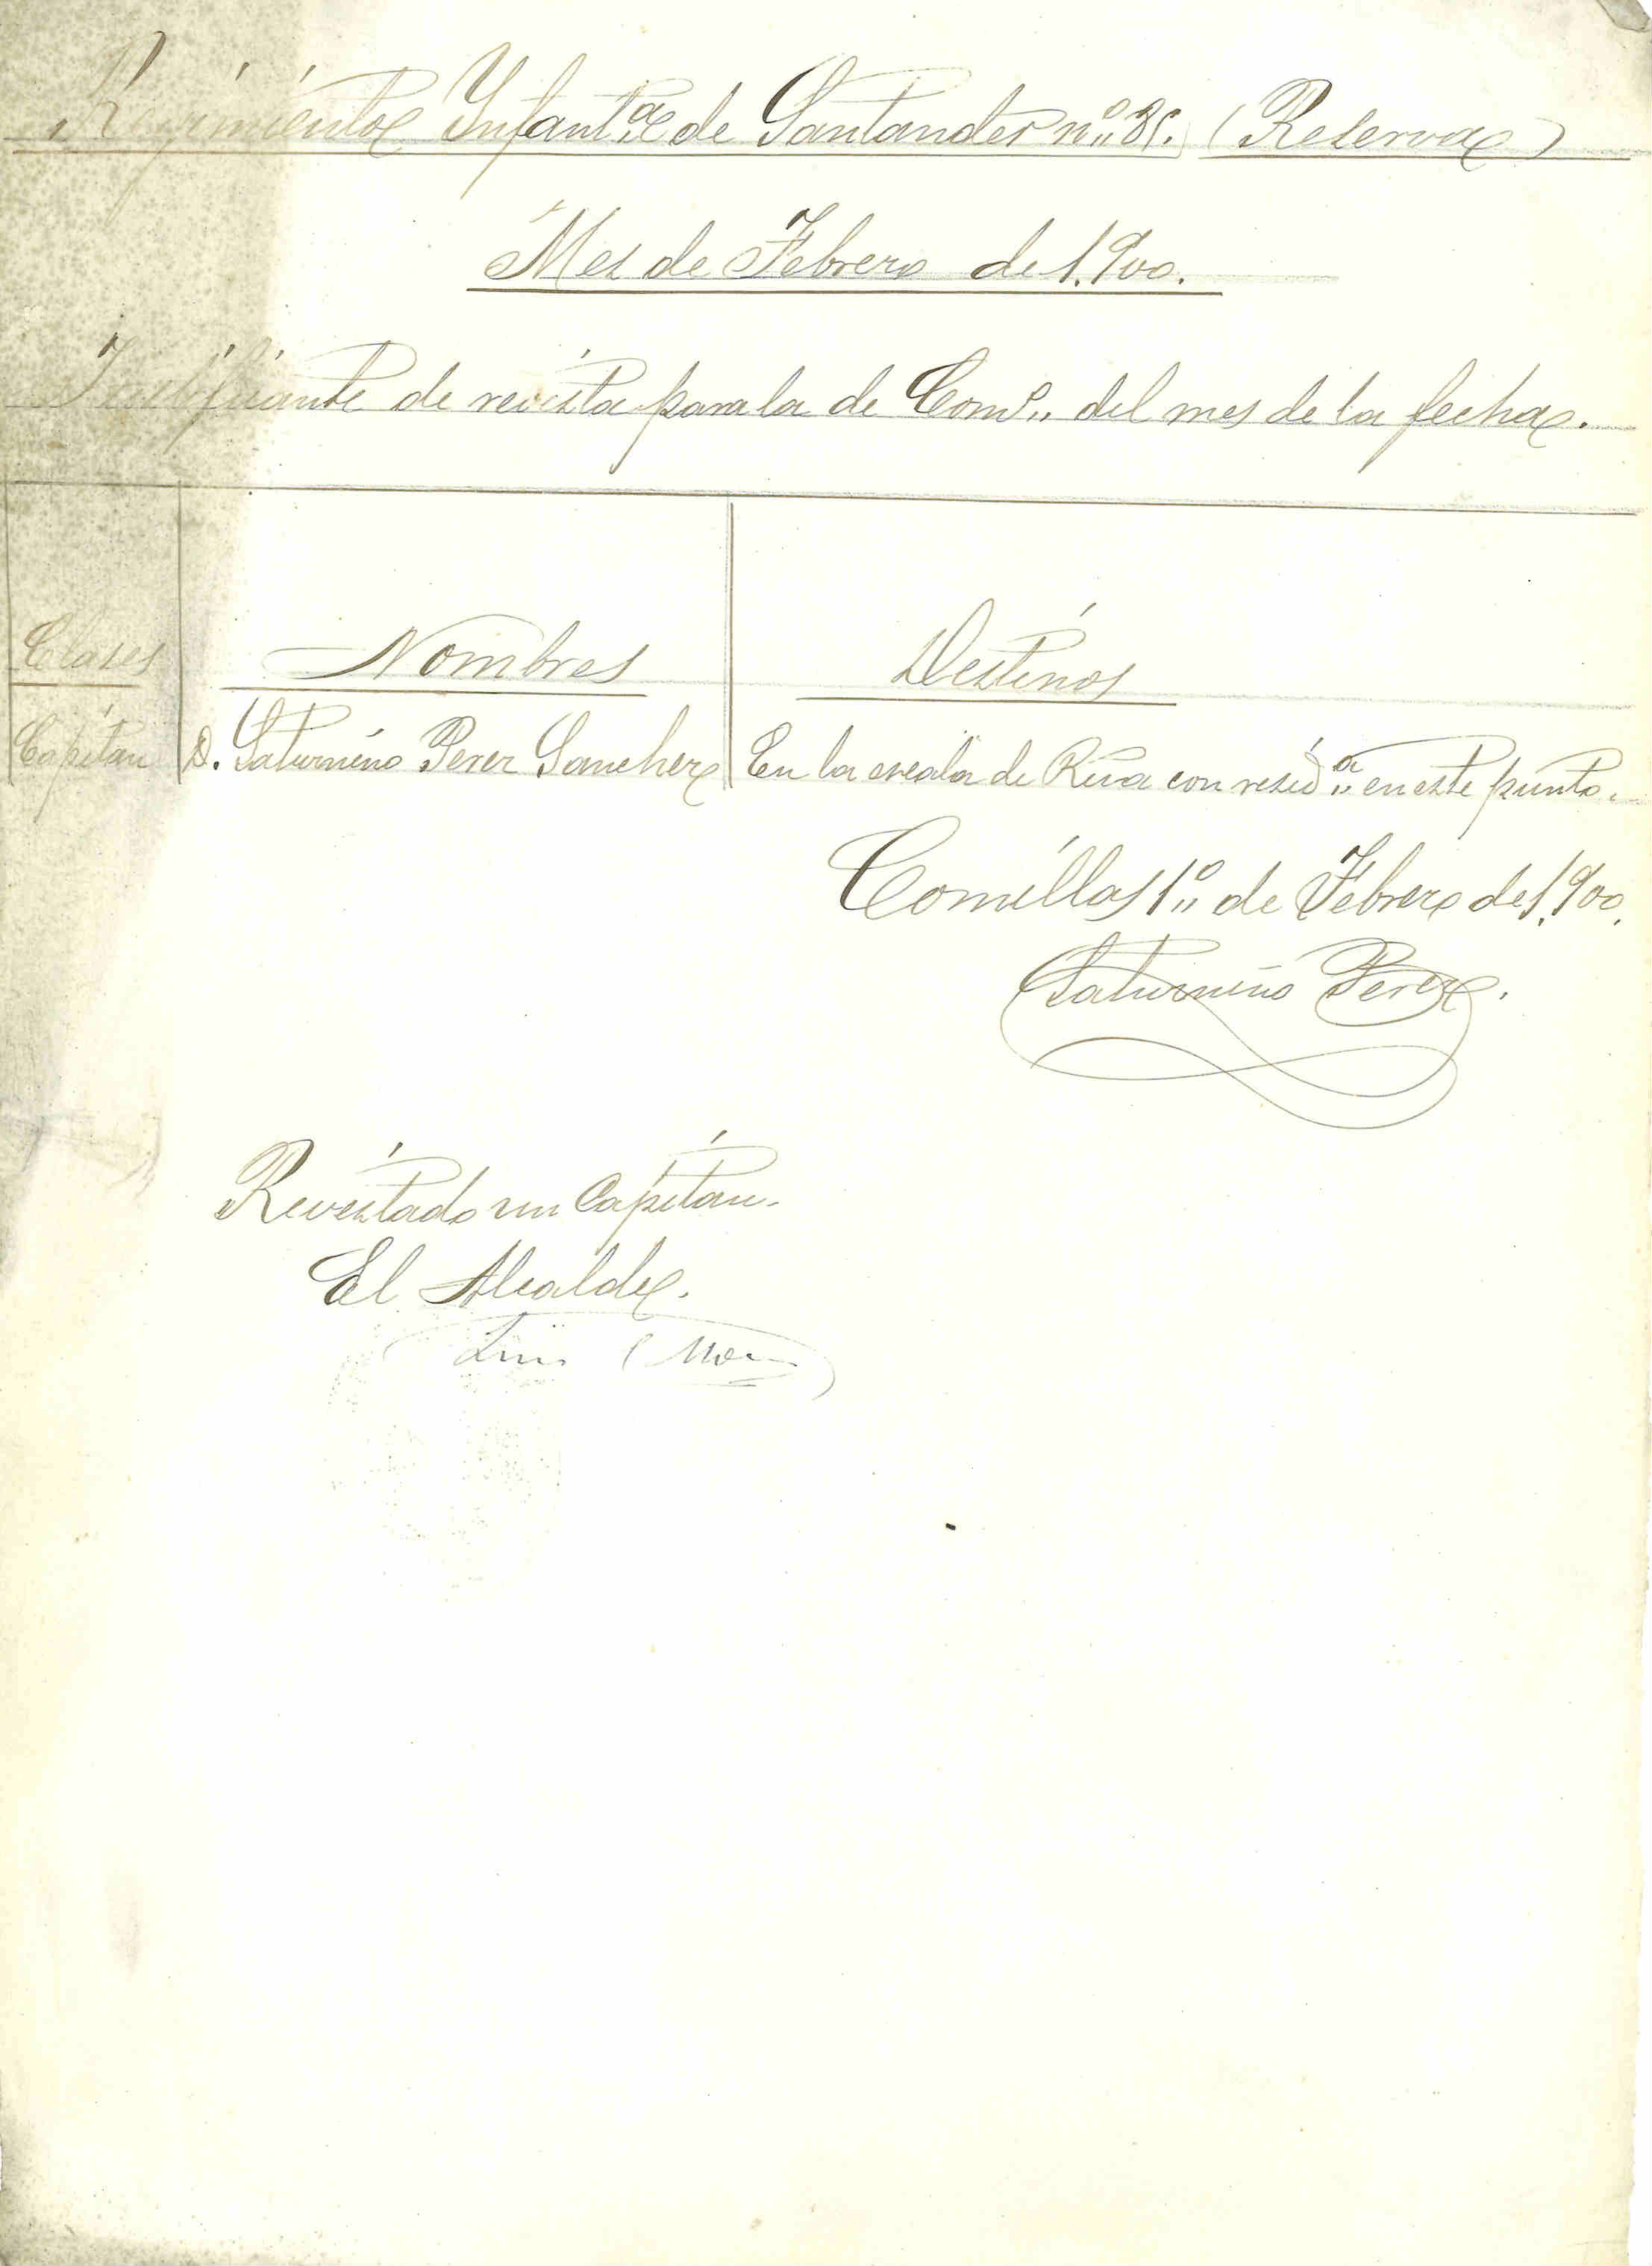 Regimiento Infant.ª de Santander n.º 85. (Reserva)
Mes de Febrero de 1.900.
Justificante de revista para la de Com.º del mes de la fecha.
Clases Nombres Destinos
Capitan D. Saturnino Perez Sanchez En la escala de Rva con resid.ª en este punto.
Comillas 1.º de Febrero de 1.900.
Saturnino Perez.
Revistado un Capitan.
El Alcalde.
Luis